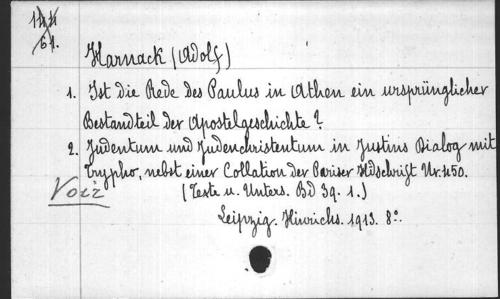 Harnack (Adolf)
1. Ist die Rede des Paulus in Athen ein ursprünglicher
Bestandteil der Apostelgeschichte?
2. Judentum und Judenchristentum in Justins Dialog mit
Trypho, nebst einer Collation der Pariser Hdschrift Nr. 450.
Voir
(Texte u. Unters. Bd 39. 1.)
Leipzig. Hinrichs. 1913. 8º.